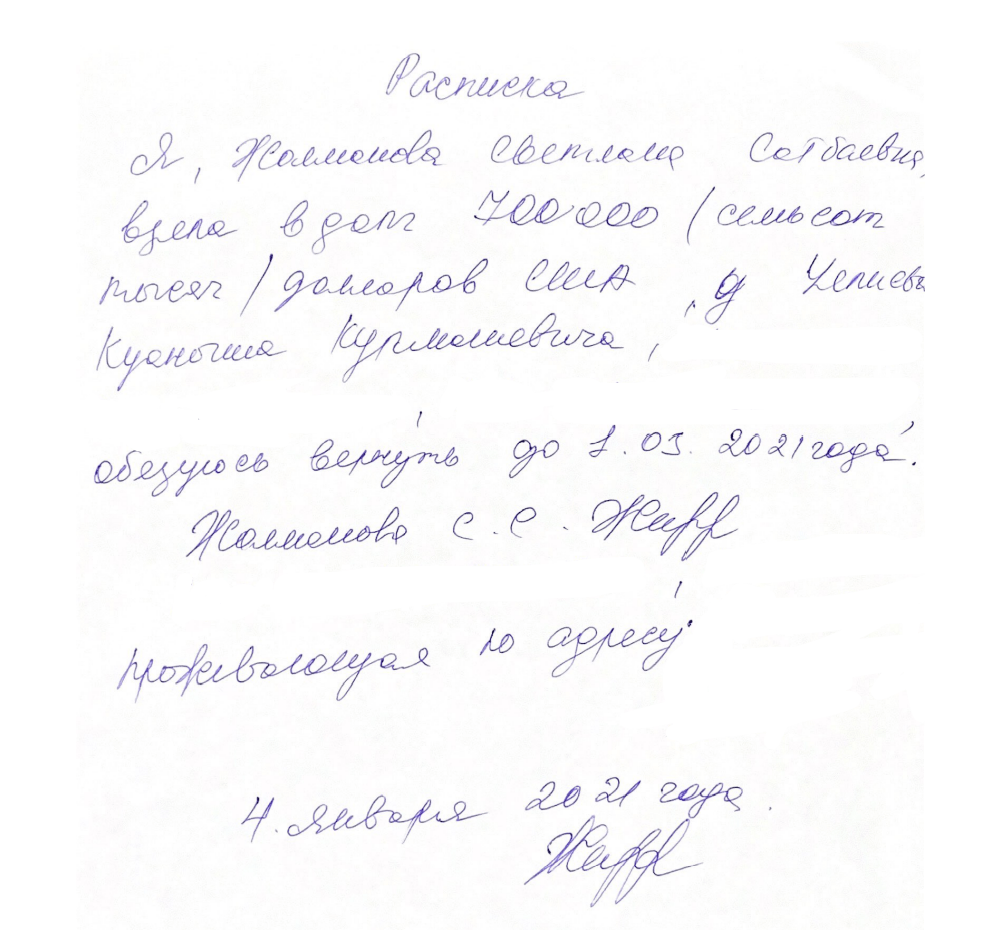 Расписка
Я, Жалманова Светлана Сатбаевна,
взяла в долг 700 000 /семьсот
тысяч/ долларов США, у
Куаныша Курмашевича,
обязуюсь вернуть до 1.03. 2021 года.
Жалманова С. С.
проживающая по адресу
4. января 2021 года.